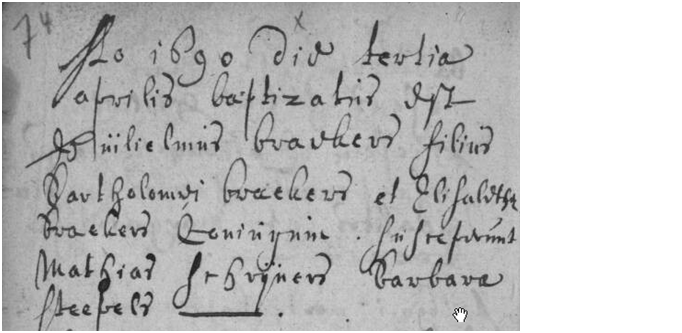 74
Ao 1690 die tertia
aprilis baptizatus est
Guilielmus braekers filius
Bartholomei braekers et Elisabetha
braekers Coniugum. susceperunt
Mathias schrijners Barbara
steepels